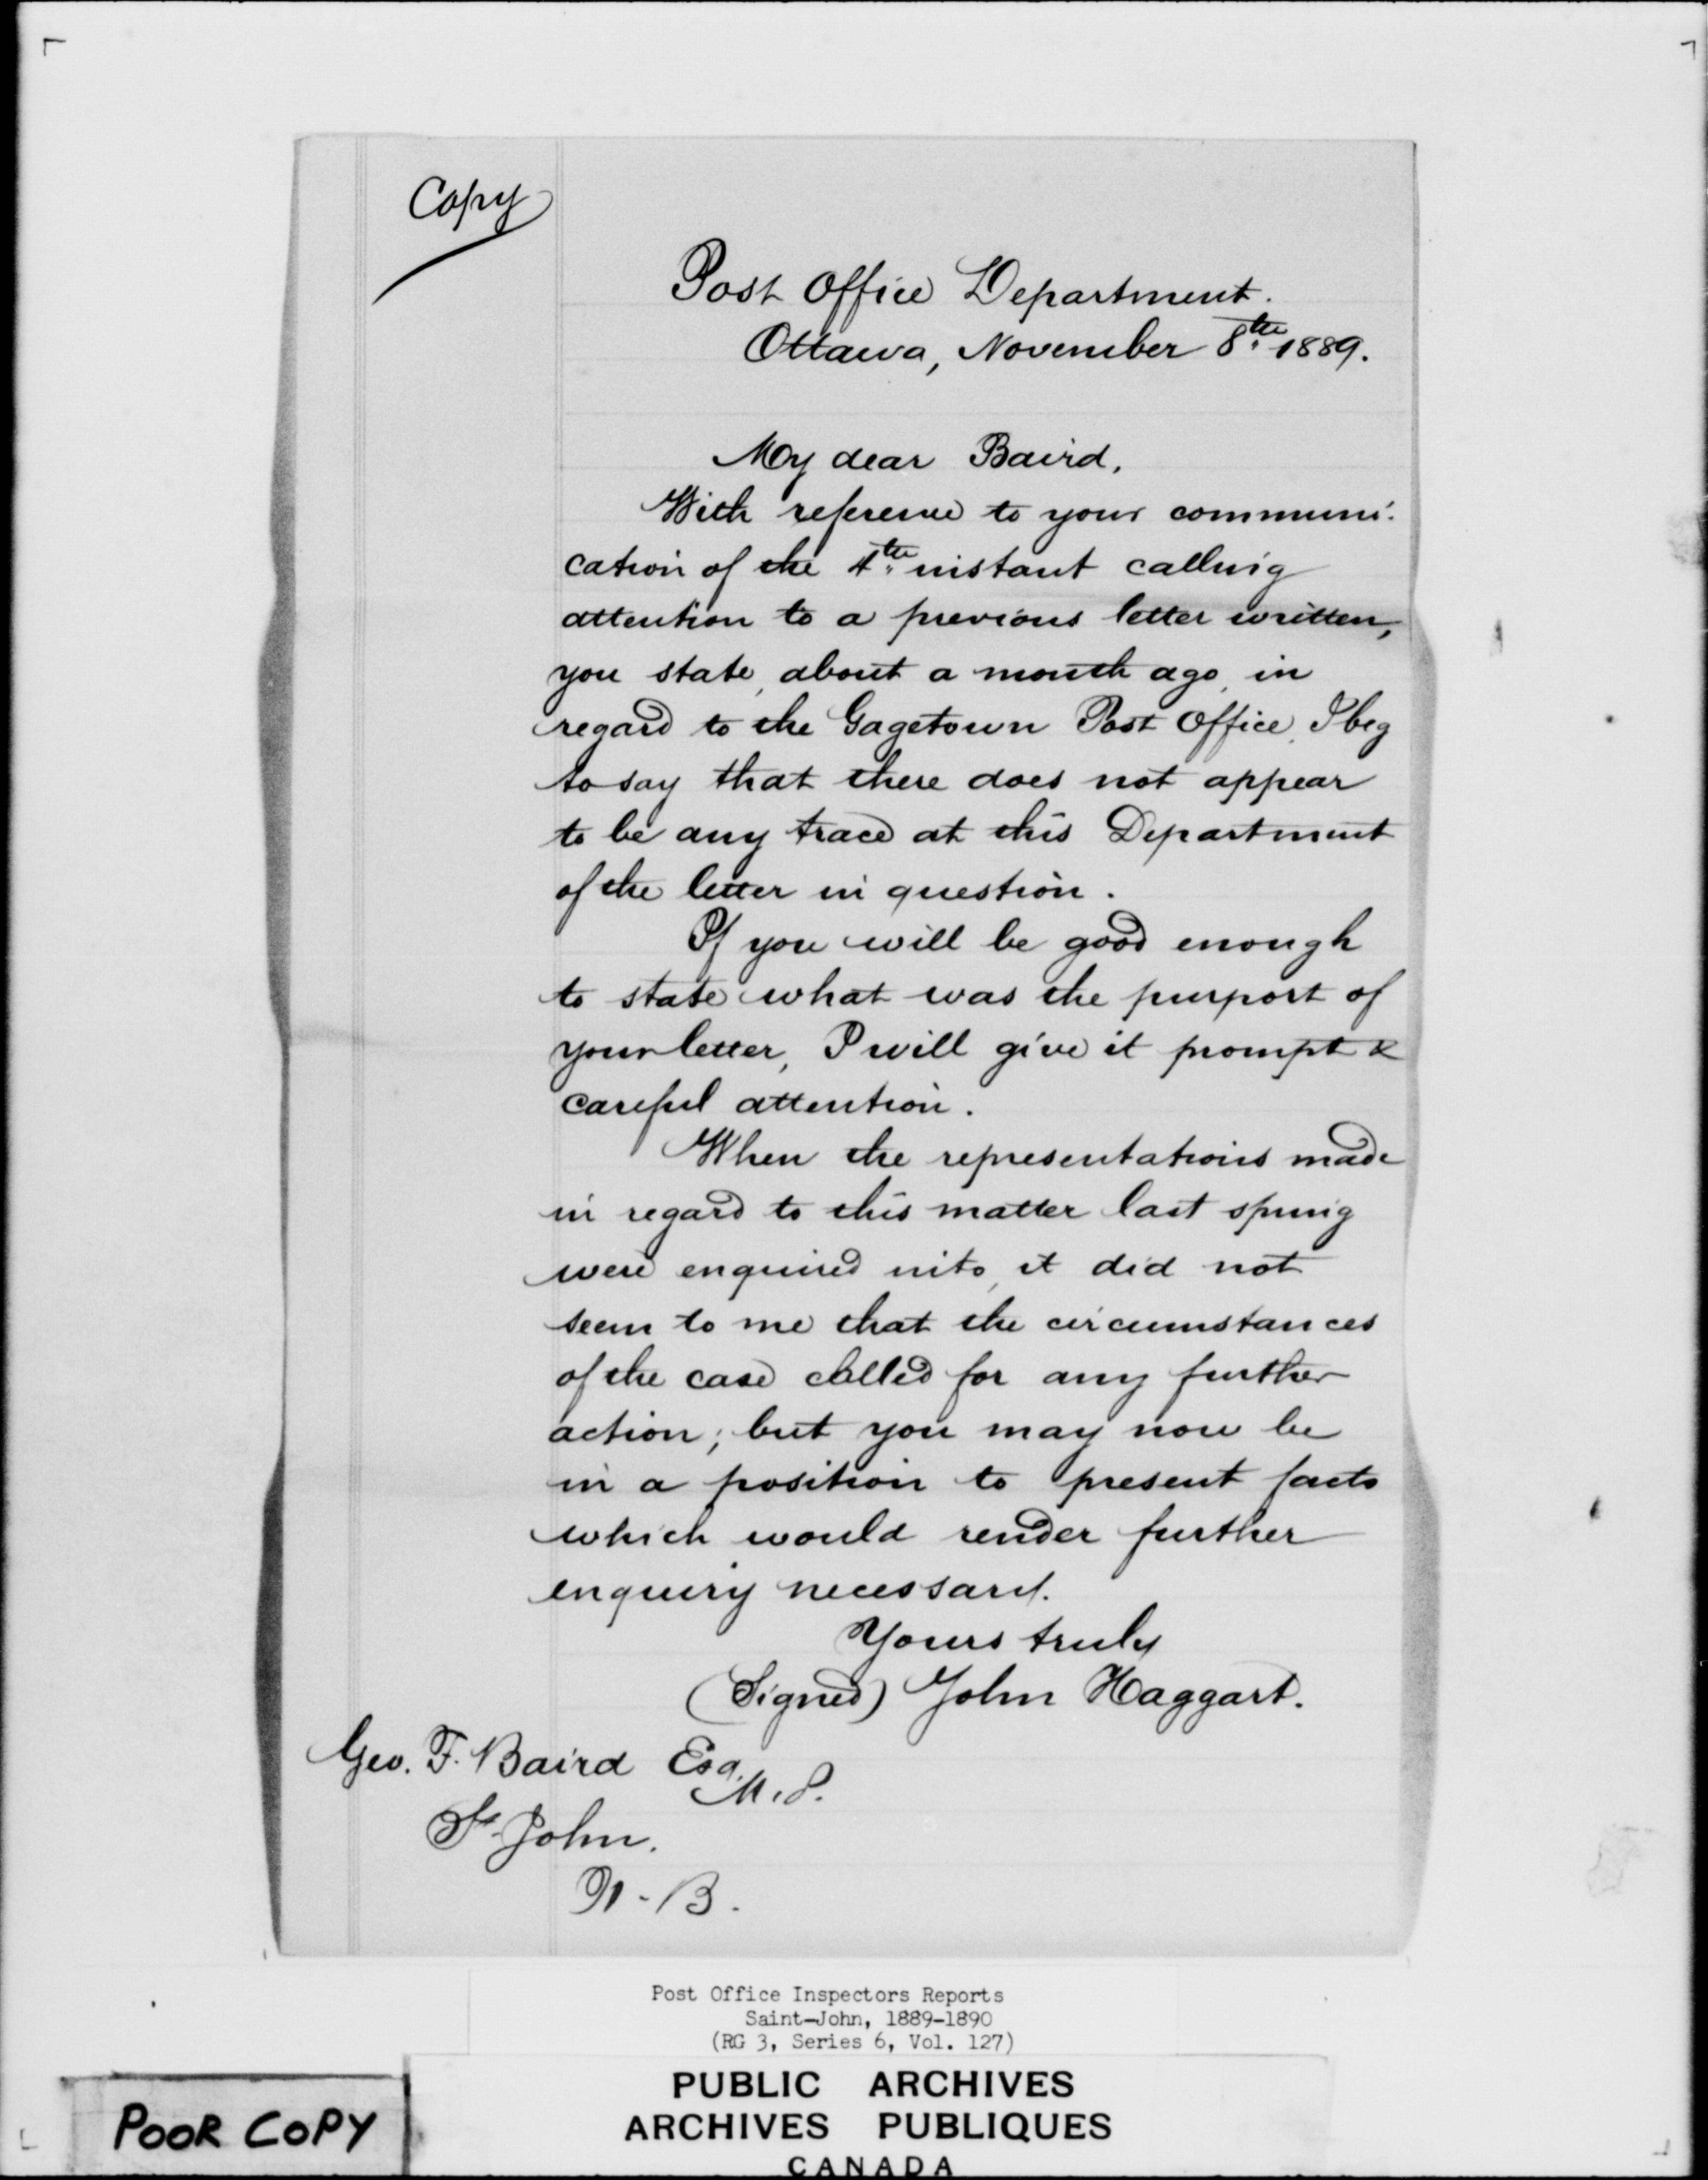 Copy
Post Office Department.
Ottawa, November 8th 1889.
My dear Baird,
With reference to your communi-
cation of the 4th instant calling
attention to a previous letter written,
you state, about a month ago, in
regard to the Gagetown Post Office, I beg
to say that there does not appear
to be any trace at this Department
of the letter in question.
If you will be good enough
to state what was the purport of
your letter, I will give it prompt &
careful attention.
When the representations made
in regard to this matter last spring
were enquired into, it did not
seem to me that the circumstances
of the case called for any further
action; but you may now be
in a position to present facts
which would render further
enquiry necessary.
Yours truly
(Signed) John Haggart.
Geo. F. Baird Esq.
M.P.
St. John.
N.B.
Post Office Inspectors Reports
Saint-John, 1889-1890
(RG 3, Series 6, Vol. 127)
PUBLIC ARCHIVES
ARCHIVES PUBLIQUES
CANADA
POOR COPY